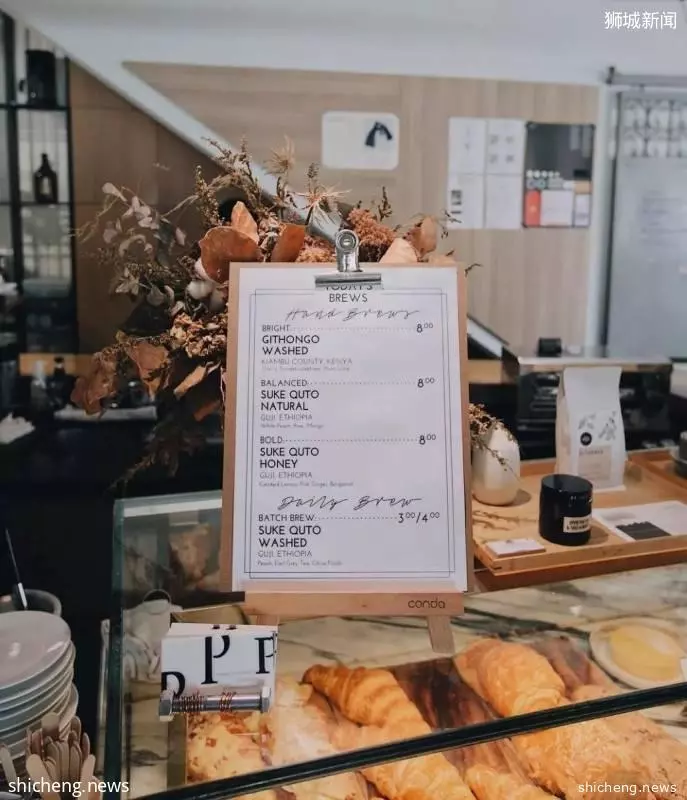 狮城新闻
TODAY'S
BREWS
Hand Brews
BRIGHT 8.00
GITHONGO
WASHED
KIAMBU COUNTY, KENYA
BALANCED 8.00
SUKE QUTO
NATURAL
GUJI, ETHIOPIA
White Peach, Pear, Mango
BOLD 8.00
SUKE QUTO
HONEY
GUJI, ETHIOPIA
Daily Brew
BATCH BREW 3.00/4.00
SUKE QUTO
WASHED
GUJI, ETHIOPIA
Peach, Earl Grey Tea, Citrus Finish
conda
P P P
shicheng.news
shicheng.news